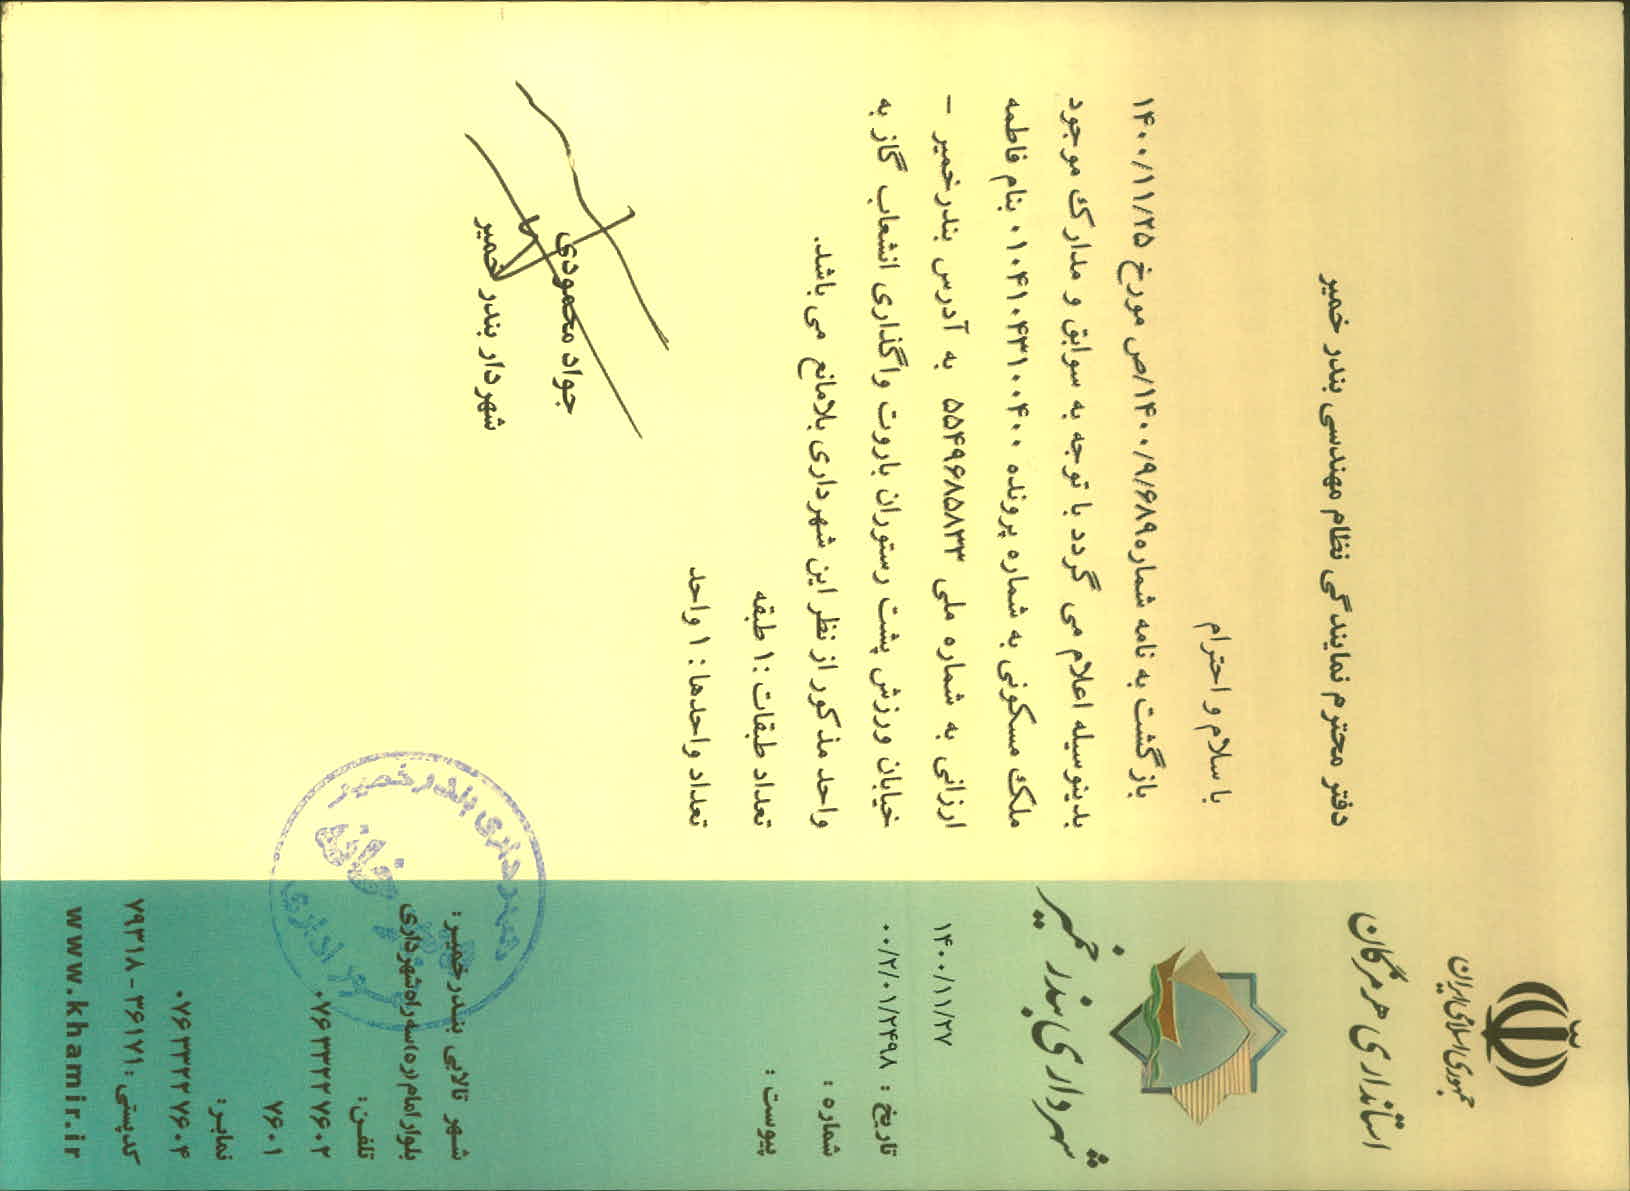 جمهوری اسلامی ایران
استانداری هرمزگان
شهرداری بندر خمیر
۱۴۰۰/۱۱/۲۷
تاریخ : ۰۰/۲/۰۱/۲۴۹۸
شماره :
پیوست :
دفتر محترم نمایندگی نظام مهندسی بندر خمیر
با سلام و احترام
بازگشت به نامه شماره۱۴۰۰/۹/۶۸۹/ص مورخ ۱۴۰۰/۱۱/۲۵
بدینوسیله اعلام می گردد با توجه به سوابق و مدارک موجود
ملک مسکونی به شماره پرونده ۰۱۰۴۱۰۴۳۱۰۰۴۰۰ بنام فاطمه
ارزانی به شماره ملی ۵۵۴۹۶۸۵۸۳۳ به آدرس بندرخمیر -
خیابان ورزش پشت رستوران باروت واگذاری انشعاب گاز به
واحد مذکور از نظر این شهرداری بلامانع می باشد.
تعداد طبقات :۱ طبقه
تعداد واحدها: ۱ واحد
جواد محمودی
شهردار بندر خمیر
شهرداری بندر خمیر
دبیرخانه
امور اداری
شهر تالابی بندرخمیر:
بلوار امام (ره) سه راه شهرداری
تلفن:
۰۷۶ ۳۳۲۲ ۷۶۰۲
۷۶۰۱
نمابر:
۰۷۶ ۳۳۲۲ ۷۶۰۴
کدپستی : ۳۶۱۷۱ - ۷۹۳۱۸
www.khamir.ir